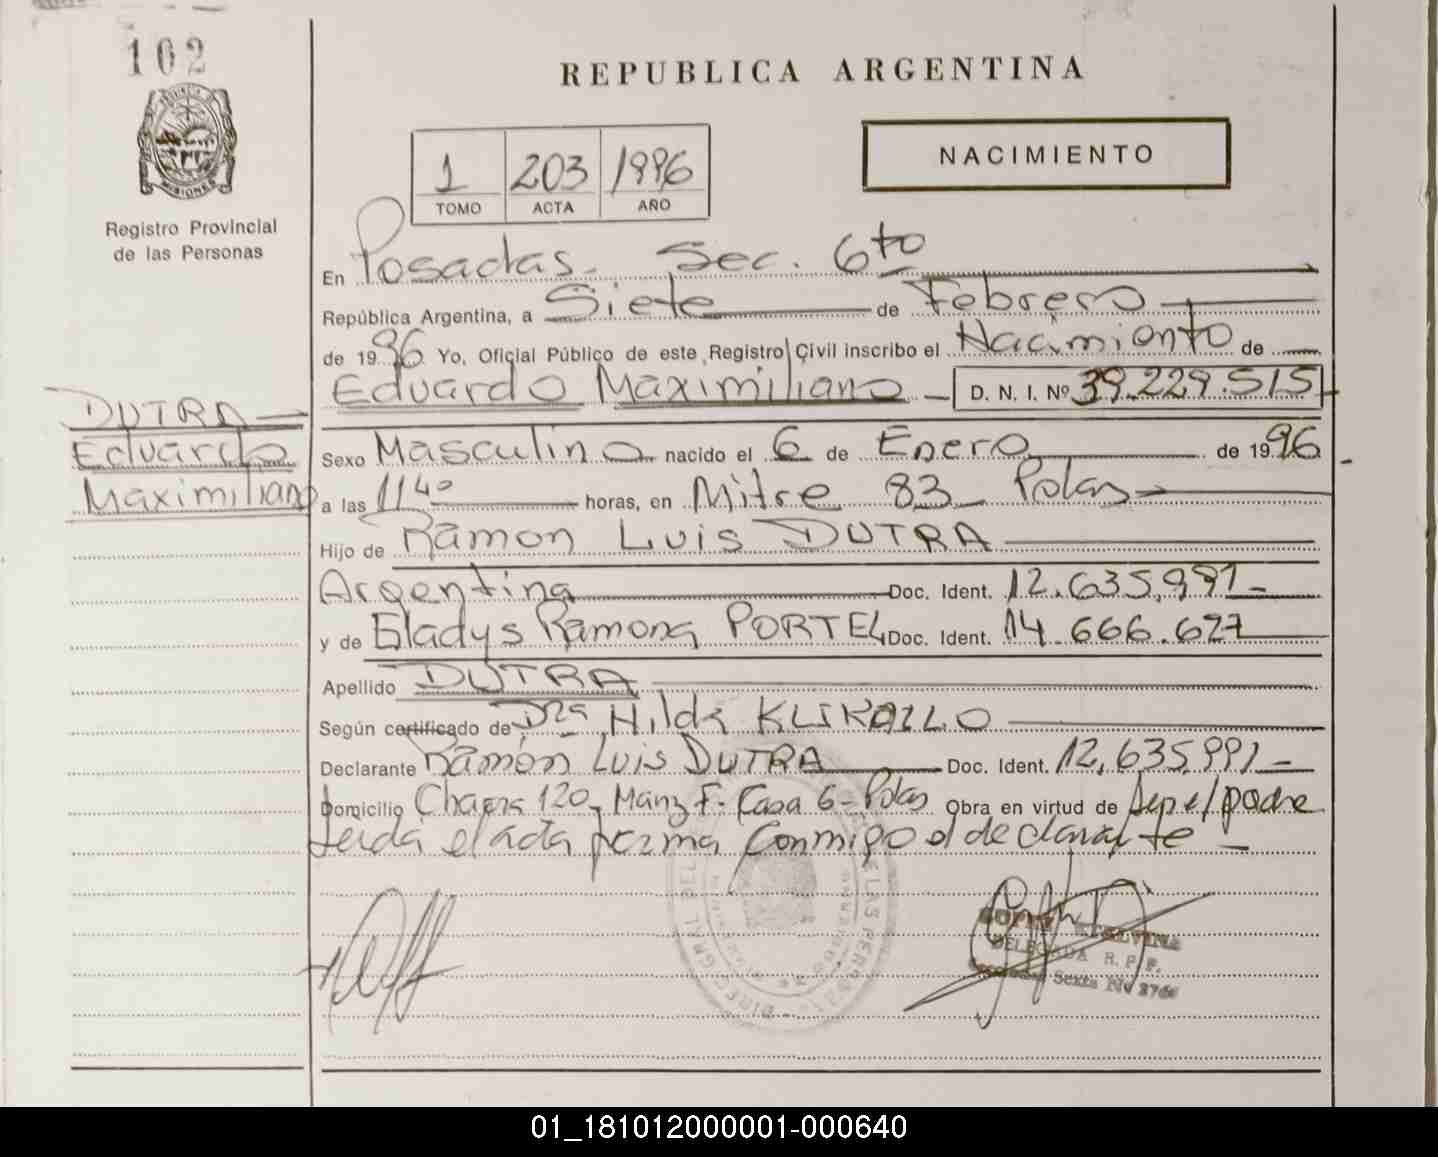 102
REPUBLICA ARGENTINA
PROVINCIA DE
MISIONES
Registro Provincial
de las Personas
1 203 1996
TOMO ACTA AÑO
NACIMIENTO
En Posadas - Sec. 6to
República Argentina, a Siete de Febrero
de 1996 Yo, Oficial Público de este Registro Civil inscribo el Nacimiento de
Eduardo Maximiliano D. N. I. Nº 39.229.515
DUTRA
Eduardo
Maximiliano
Sexo Masculino nacido el 6 de Enero de 1996
a las 11 40 horas, en Mitre 83 - Pdas
Hijo de Ramon Luis DUTRA
Argentina Doc. Ident. 12.635.991
y de Gladys Ramona PORTEL Doc. Ident. 14.666.627
Apellido DUTRA
Según certificado de Dra Hilda
Declarante Ramón Luis DUTRA Doc. Ident. 12,635,991
Domicilio Chacra 120 - Manz F - Casa 6 - Pdas Obra en virtud de padre
Leida el acta firma conmigo el declarante
DELEGADA R. P. P.
Sexta
01_181012000001-000640